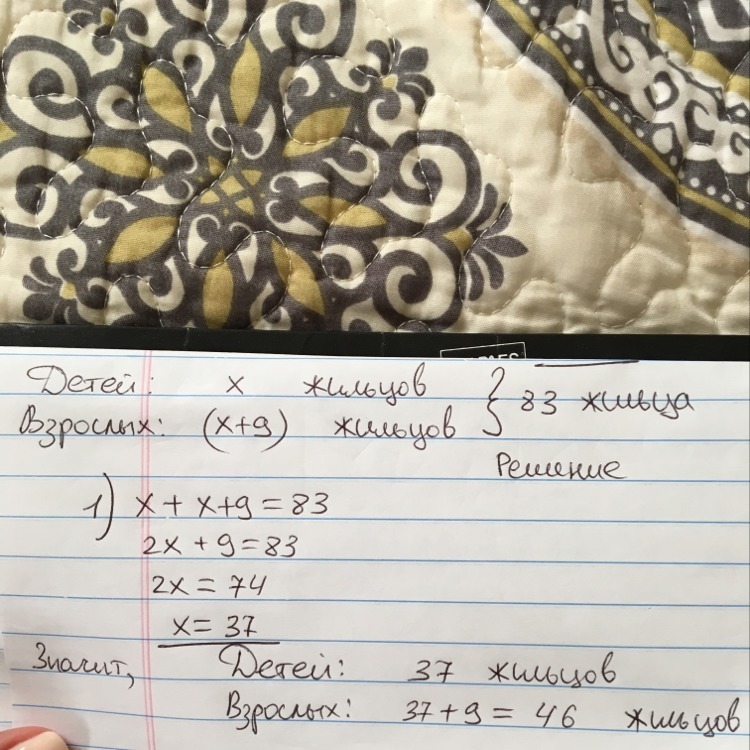 Детей: х жильцов } 83 жильца
Взрослых: (х+9) жильцов
Решение
1) х + х+9 = 83
2х + 9 = 83
2х = 74
х = 37
Значит, Детей: 37 жильцов
Взрослых: 37+9 = 46 жильцов